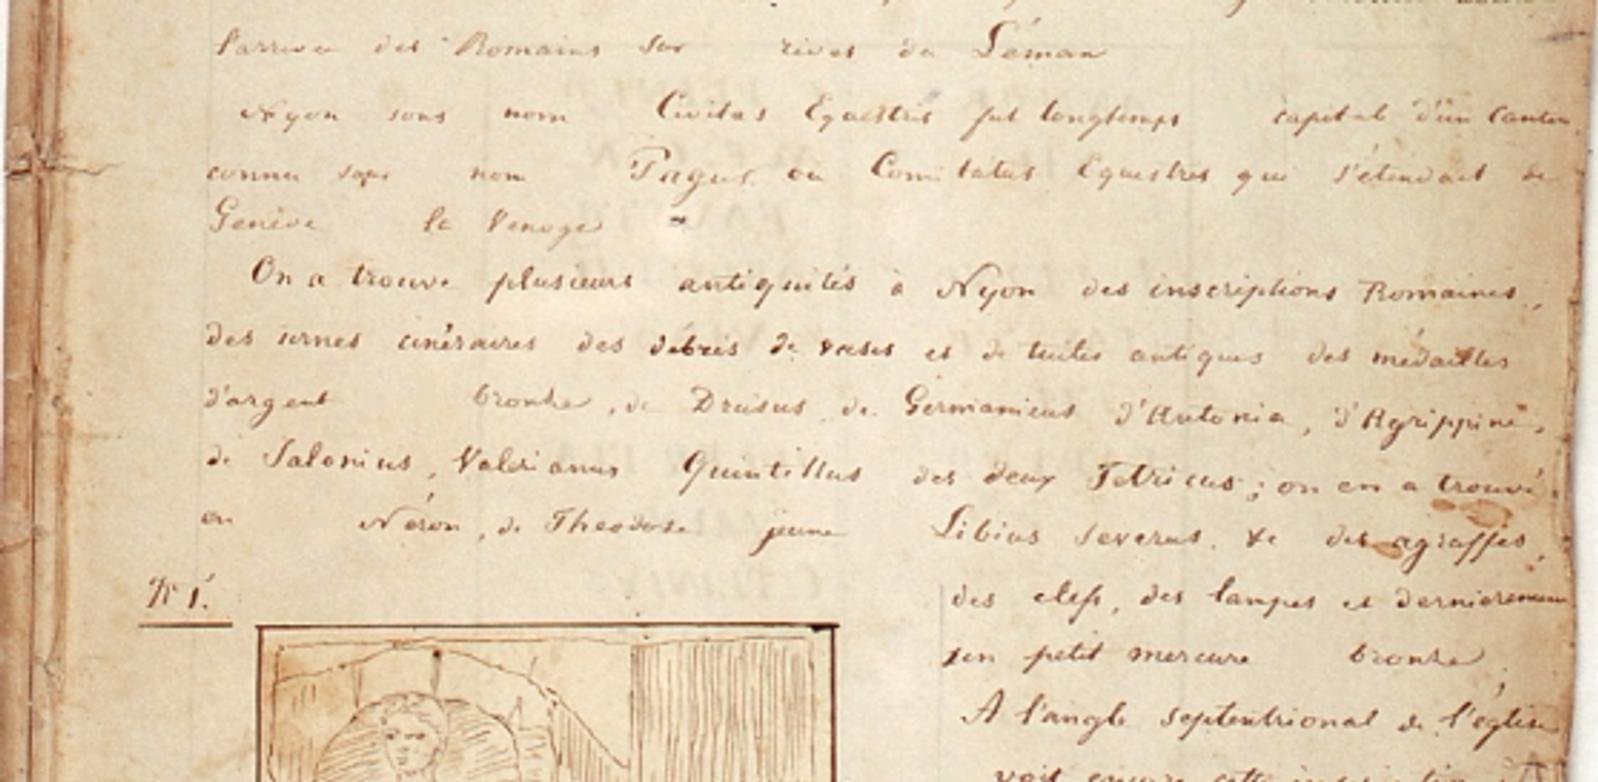 l'arrivée des Romains sur rives du Léman
Nyon sous nom Civitas Equestris fut longtemps capital d'un canton
connu sous nom Pagus ou Comitatus Equestres qui s'étendait de
Genève la Venoge
On a trouvé plusieurs antiquités à Nyon des inscriptions Romaines,
des urnes cinéraires des débris de vases et de tuiles antiques des médailles
d'argent bronze, de Drusus de Germanicus d'Antonia, d'Agrippine,
de Salonius, Valerianus Quintillus des deux Tetricus; on en a trouvé
en Néron, de Theodose jeune Libius Severus. &c des agraffes,
des clefs, des lampes et dernièrement
un petit mercure bronze
A l'angle septentrional de l'église
voit encore cette
N° 1.